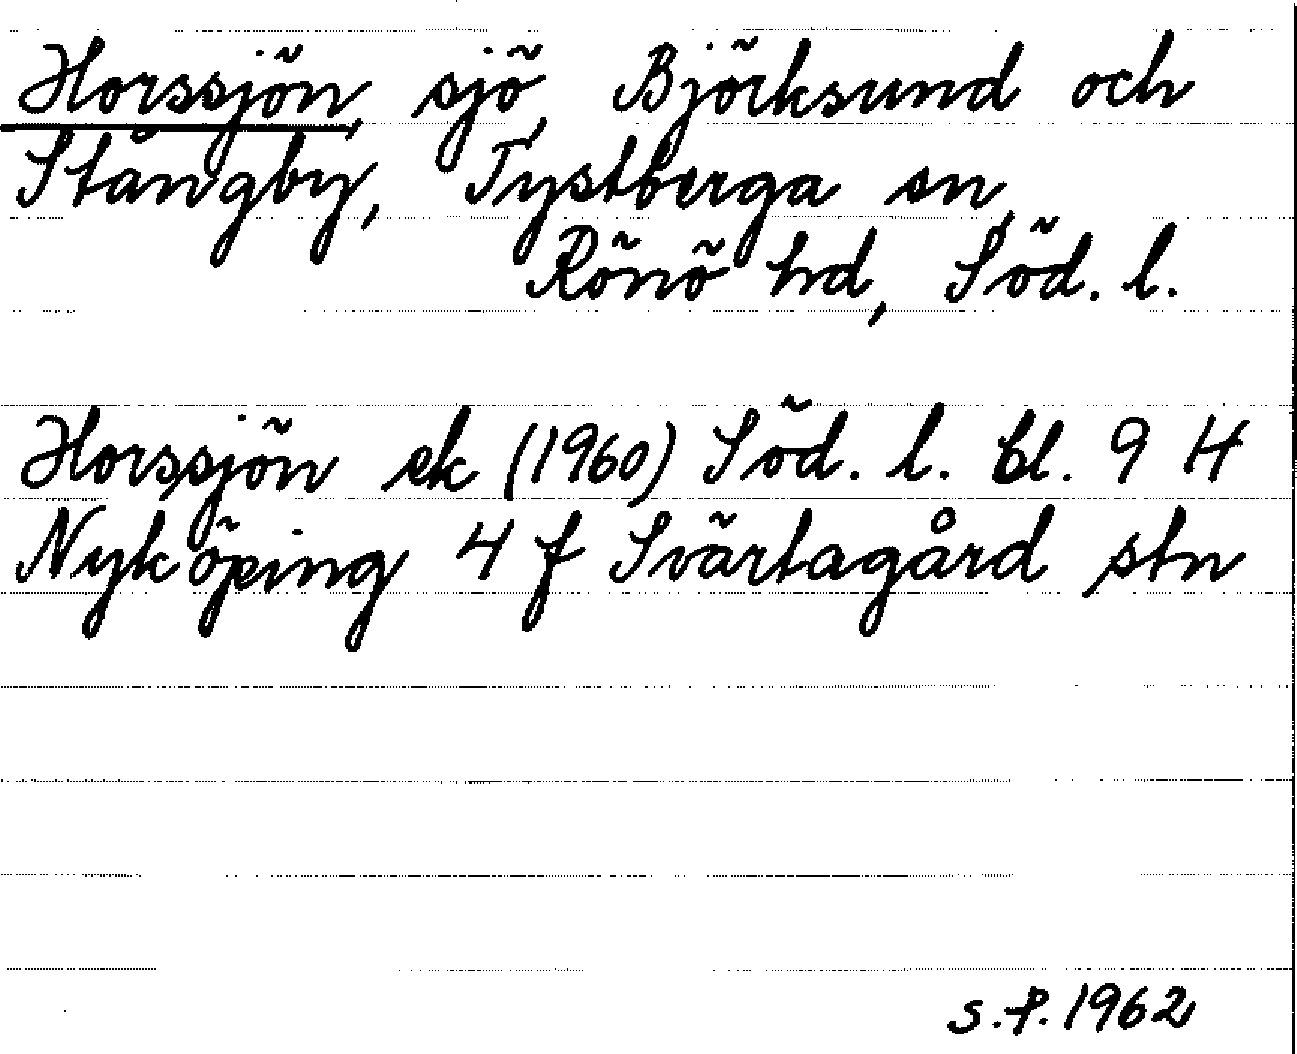 Horssjön, sjö, Björksund och
Stångby, Tystberga sn,
Rönö hd, Söd. l.
Horssjön ek (1960) Söd. l. bl. 9 H
Nyköping 4 f Svärtagård stn
S.P. 1962